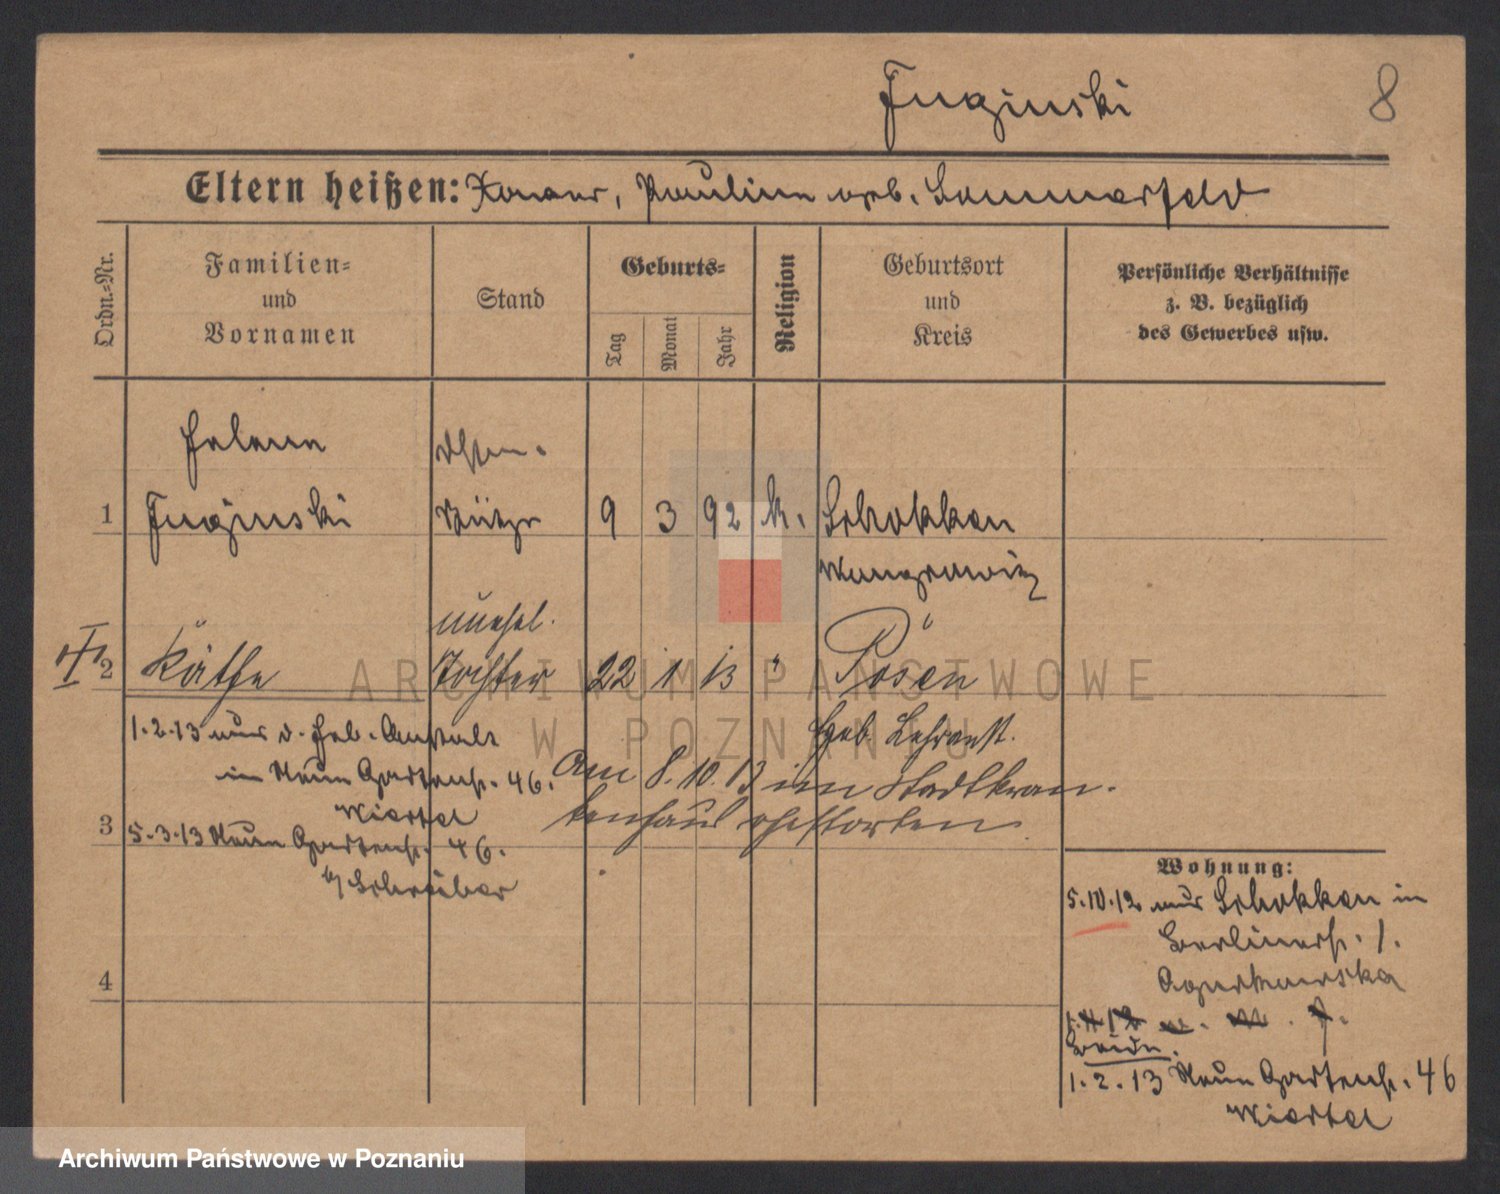 Juginski
8
Eltern heißen: Xaver, Pauline geb. Sommerfeld
Ordn.-Nr.
Familien-
und
Vornamen
Stand
Geburts-
Tag
Monat
Jahr
Religion
Geburtsort
und
Kreis
Persönliche Verhältnisse
z. B. bezüglich
des Gewerbes usw.
Helene
1 Juginski 9 3 92 k. Schokken
Wongrowitz
unehel.
2 Käthe Tochter 22 1 13 " Posen
Heb. Lehranst.
1.2.13 aus d. Heb. Anstalt
in Neue Gartenstr. 46.
Wiertel
3
5.3.13 Neue Gartenstr. 46.
b/ Schreiber
Am 8.10.13 im Stadtkran-
kenhaus verstorben
4
Wohnung:
5.10.12 aus Schokken in
Berlinerstr. 1.
Beide.
1.2.13 Neue Gartenstr. 46
Wiertel
ARCHIWUM PAŃSTWOWE
W POZNANIU
Archiwum Państwowe w Poznaniu